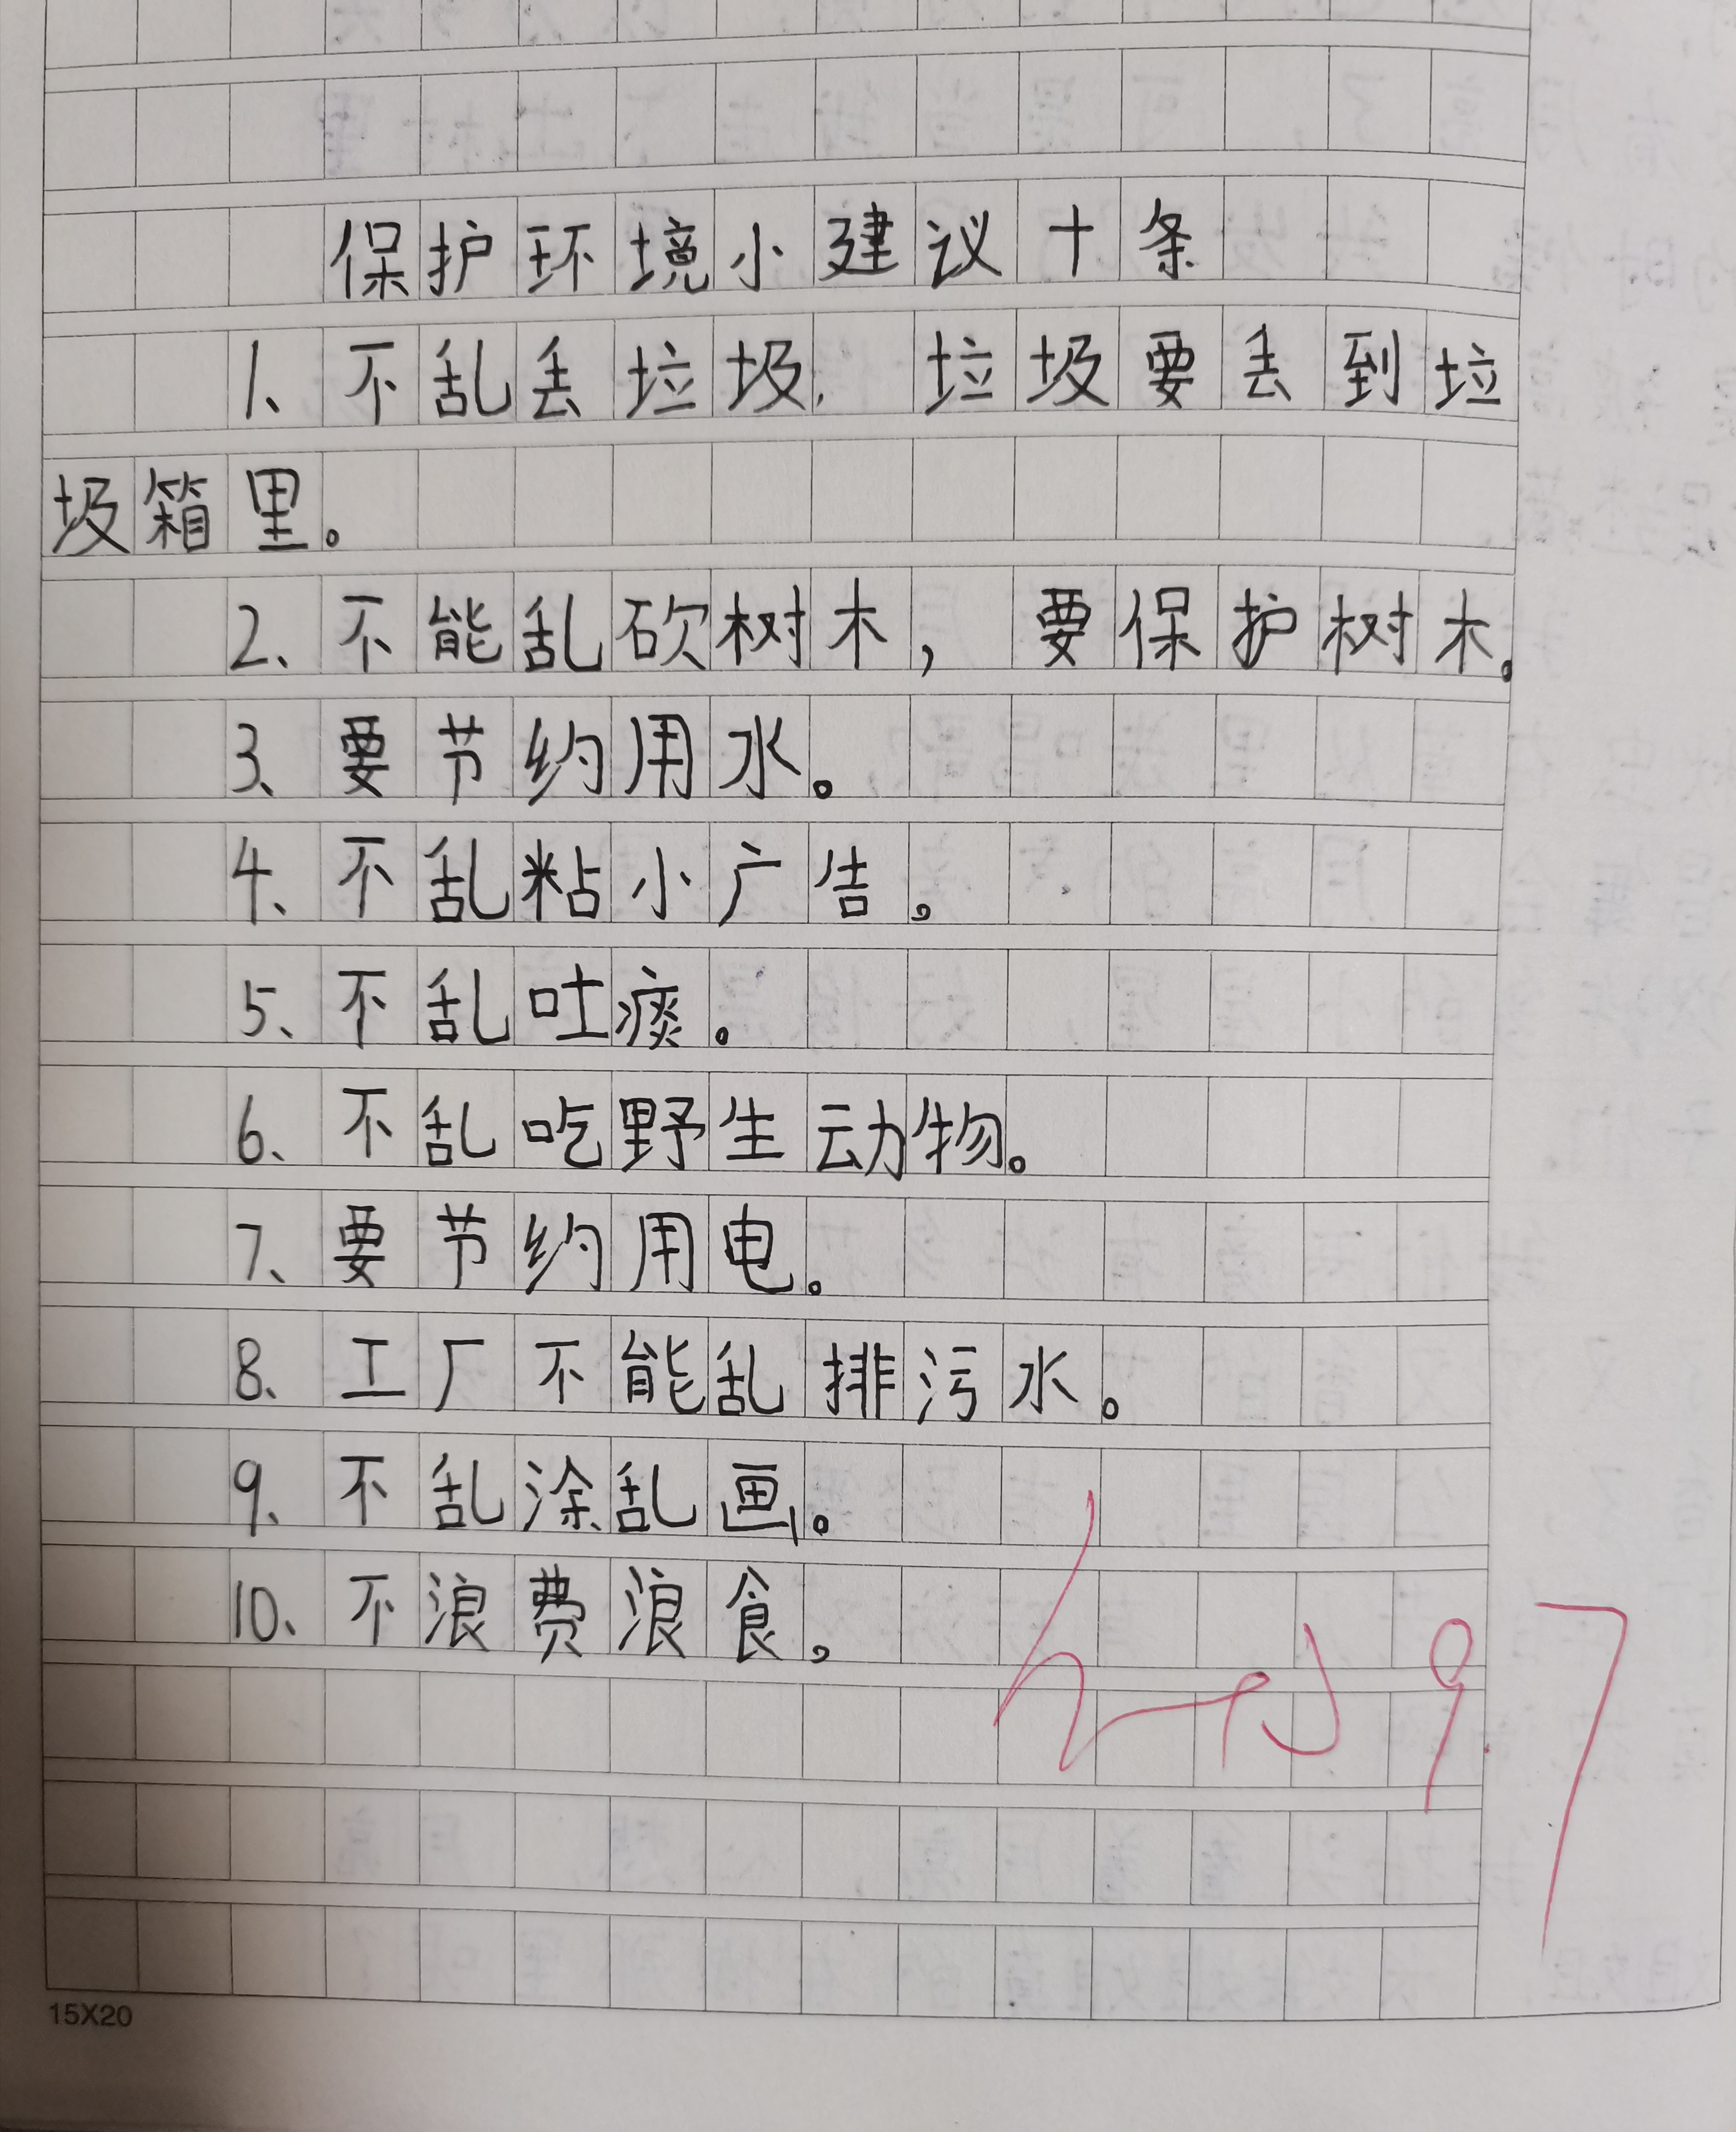 保护环境小建议十条
1、不乱丢垃圾，垃圾要丢到垃
圾箱里。
2、不能乱砍树木，要保护树木。
3、要节约用水。
4、不乱粘小广告。
5、不乱吐痰。
6、不乱吃野生动物。
7、要节约用电。
8、工厂不能乱排污水。
9、不乱涂乱画。
10、不浪费浪食。
97
15X20